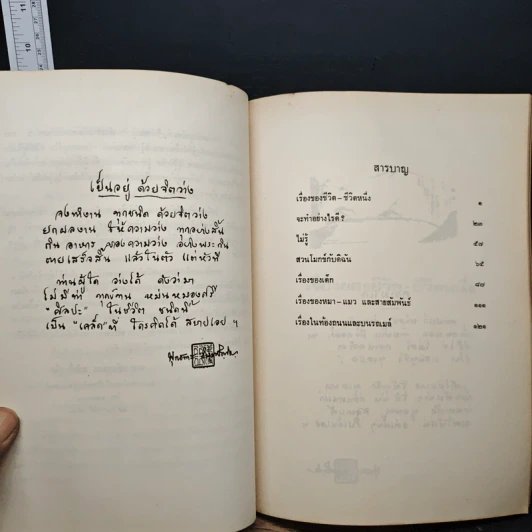 11
10
เป็นอยู่ ด้วยจิตว่าง
จงทำงาน ทุกชนิด ด้วยจิตว่าง
ยกผลงาน ให้ความว่าง ทุกอย่างสิ้น
กินอาหาร ของความว่าง อย่างพระกิน
ตายเสร็จสิ้น แล้วในตัว แต่หัวที
ท่านผู้ใด ว่างได้ ดังว่ามา
ไม่มีท่า ทุกข์ทน หม่นหมองศรี
"ศิลปะ" ในชีวิต ชนิดนี้
เป็น "เคล็ด" ที่ ใครคิดได้ สบายเอย ฯ
สารบาญ
เรื่องของชีวิต-ชีวิตหนึ่ง ๑
จะทำอย่างไรดี? ๒๓
ไม่รู้ ๕๗
สวนโมกข์กับดิฉัน ๖๕
เรื่องของเด็ก ๘๗
เรื่องของหมา-แมว และสายสัมพันธ์ ๑๑๑
เรื่องในท้องถนนและบนรถเมล์ ๑๒๑